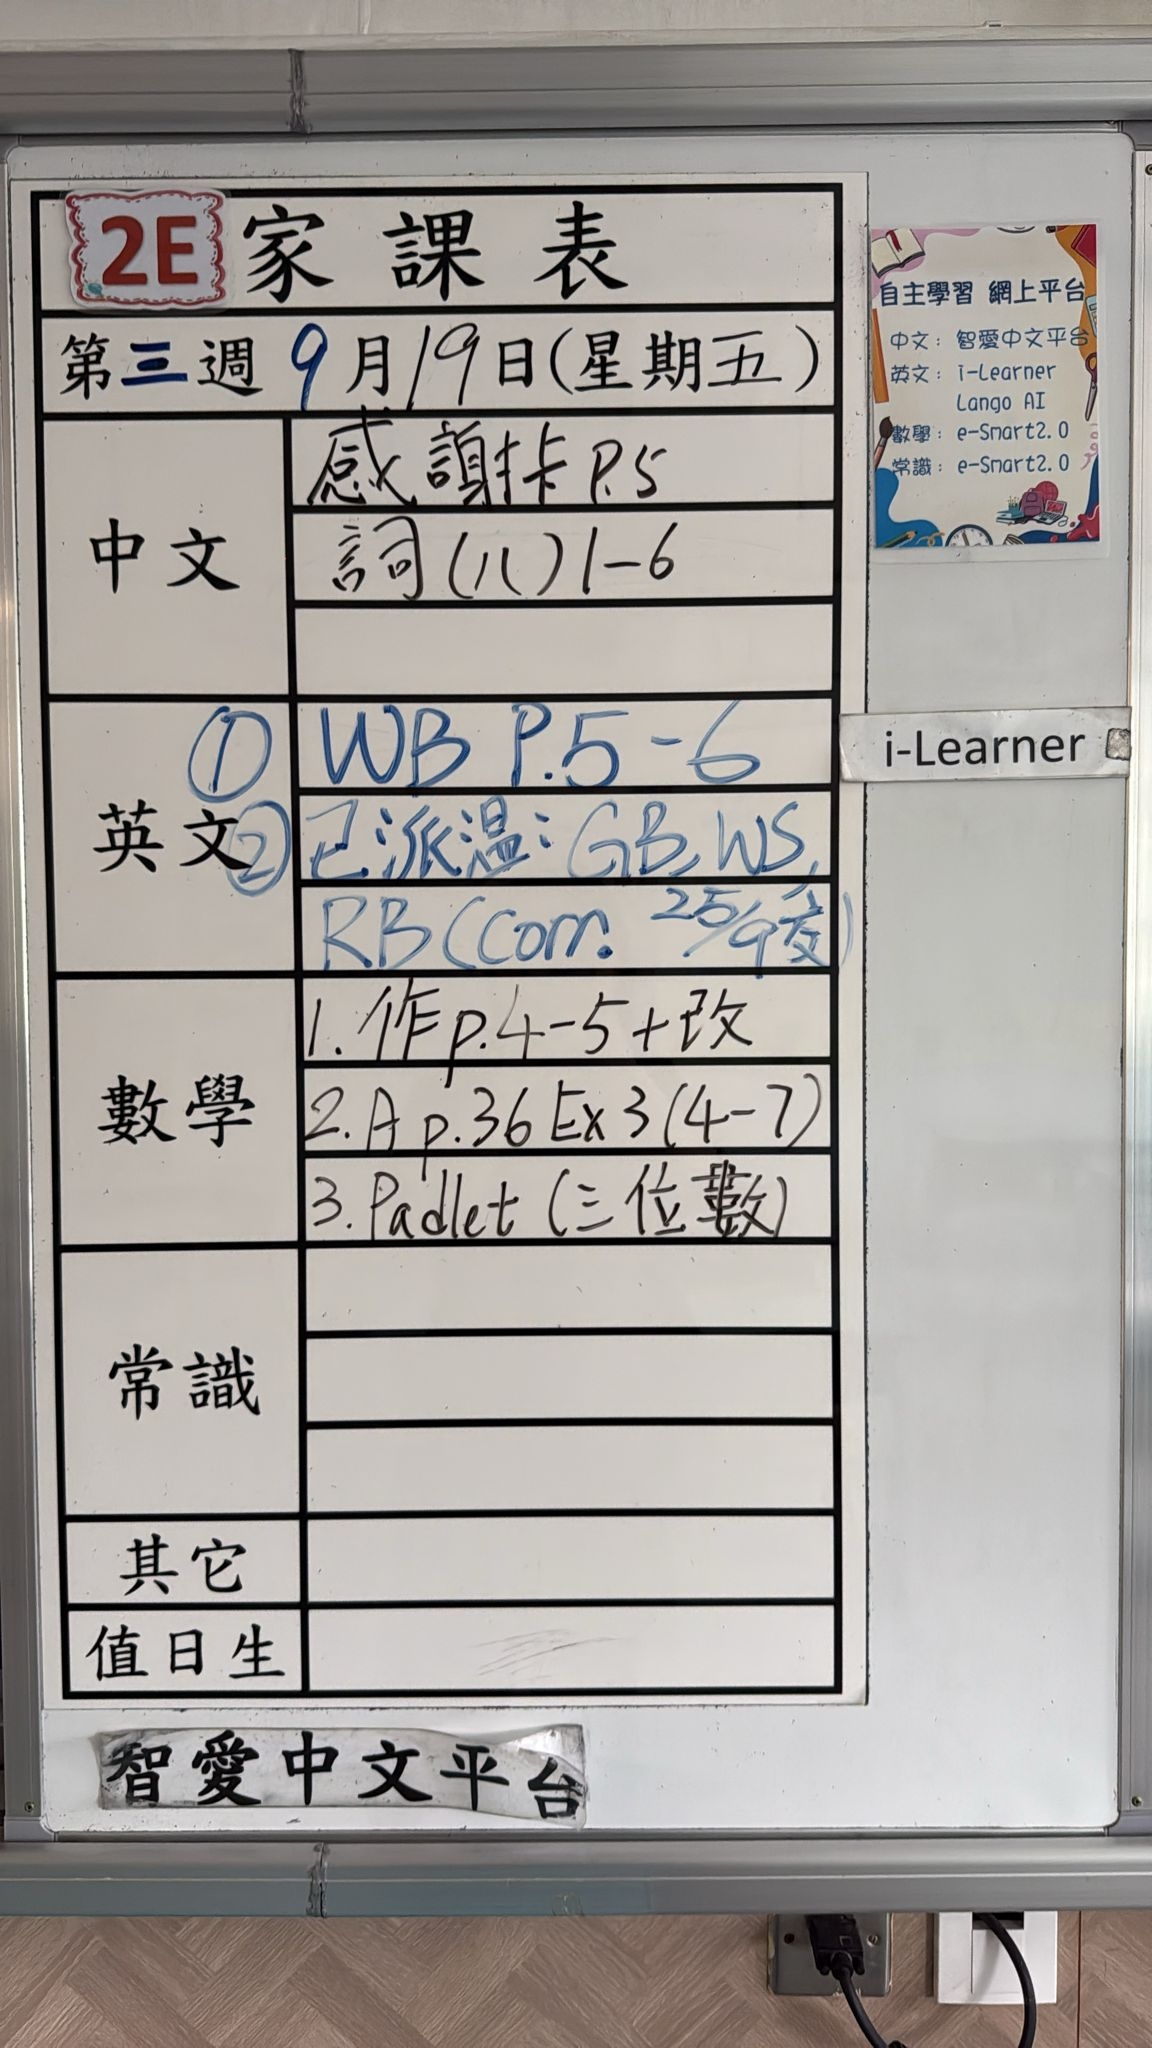 2E 家課表
第三週 9月19日(星期五)
中文
感謝卡 P.5
詞(八) 1-6
英文
① WB P.5-6
② 已派溫: GB, WS,
RB (Corr. 25/9交)
數學
1. 作p.4-5+改
2. A p.36 Ex 3 (4-7)
3. Padlet (三位數)
常識
其它
值日生
智愛中文平台
自主學習 網上平台
中文: 智愛中文平台
英文: i-Learner
Lango AI
數學: e-Smart2.0
常識: e-Smart2.0
i-Learner